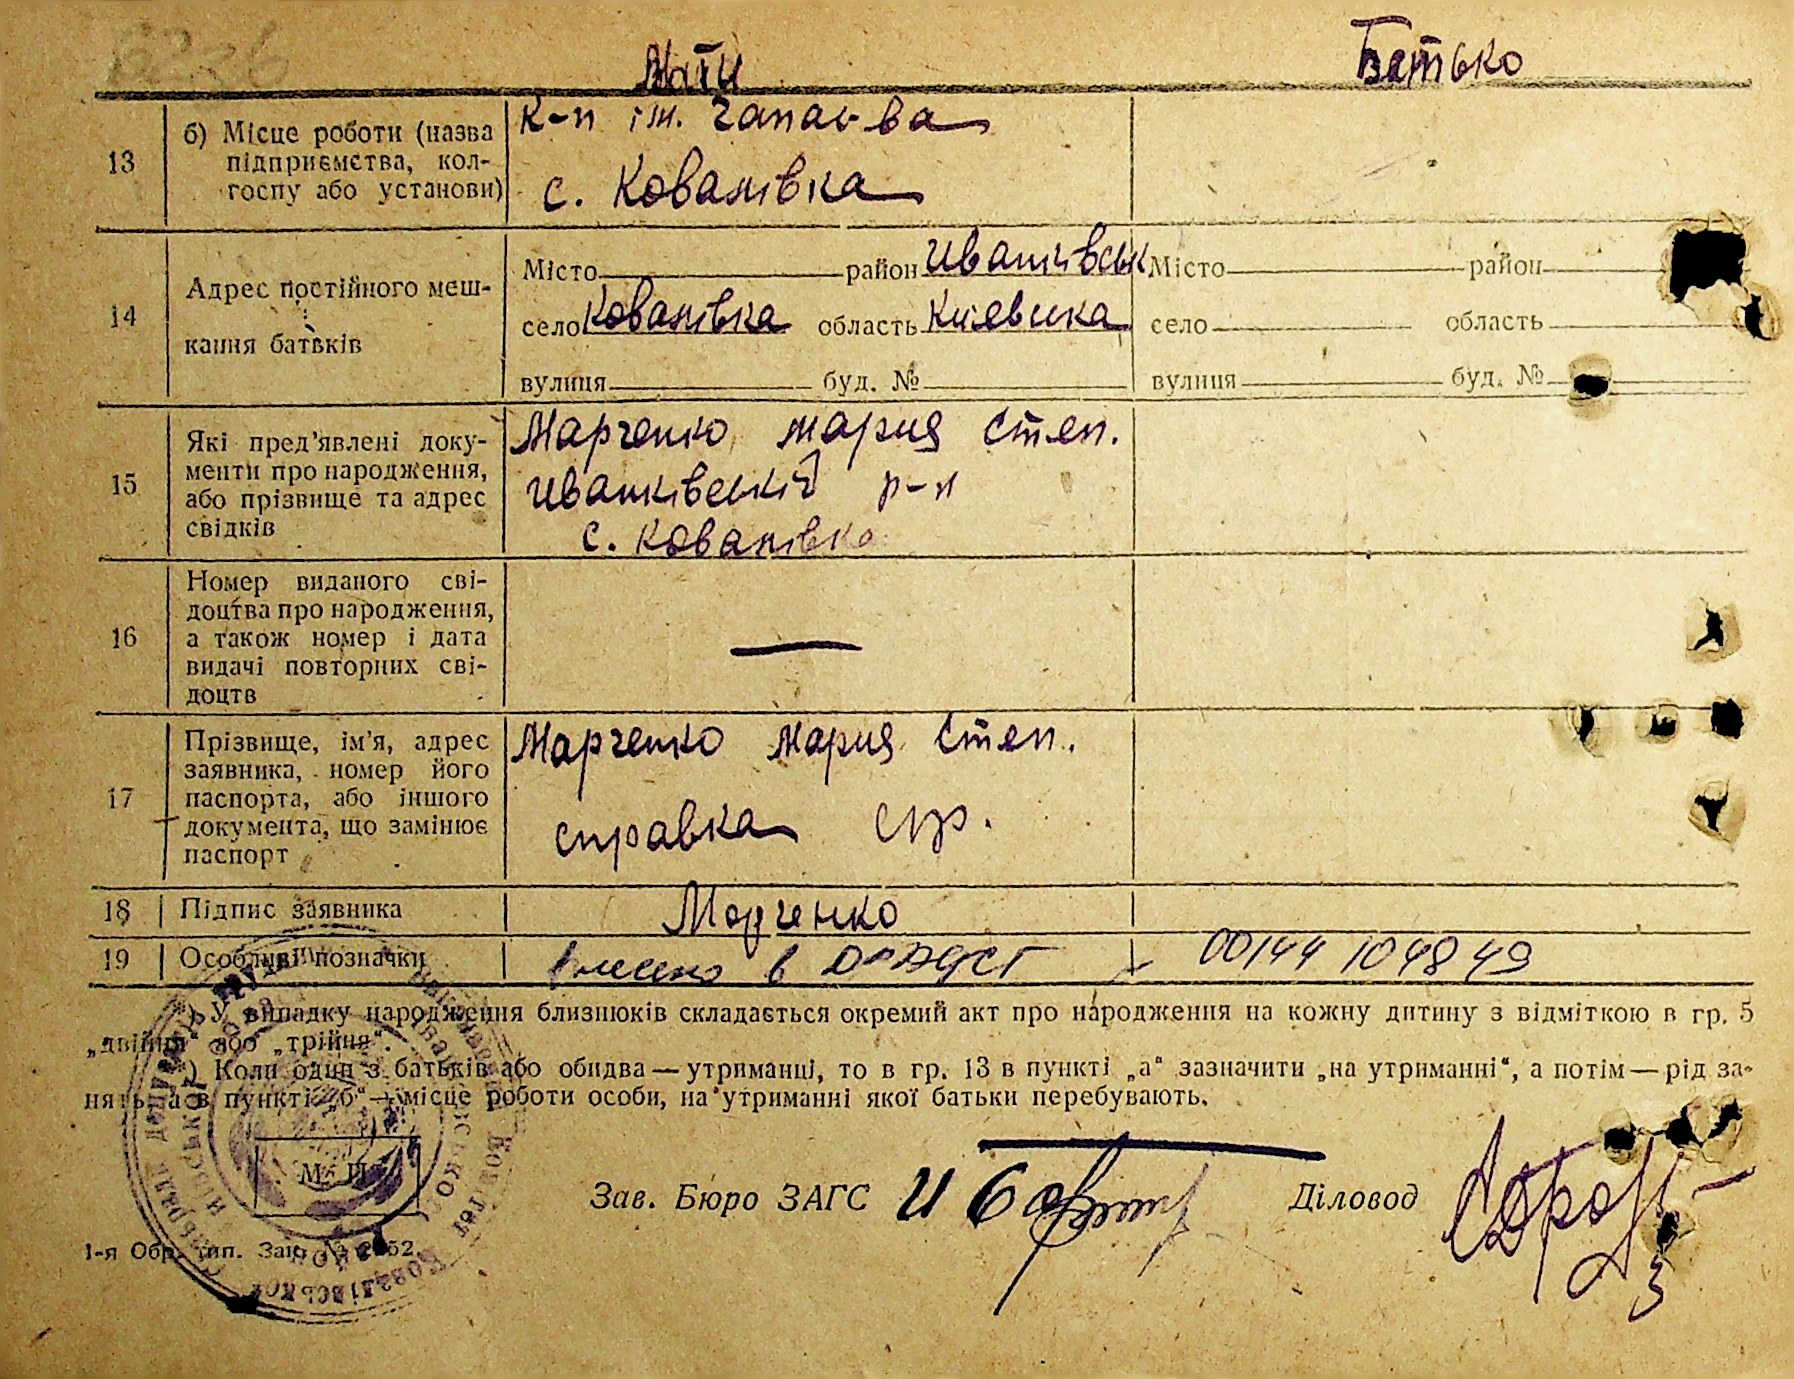 6236
Мати Батько
13 б) Місце роботи (назва підприємства, колгоспу або установи)
К-п ім. Чапаєва
с. Ковалівка
14 Адрес постійного мешкання батьків
Місто район Иванківськ Місто район
село Ковалівка область Київська село область
вулиця буд. № вулиця буд. №
15 Які пред'явлені документи про народження, або прізвище та адрес свідків
Марченко Мария Степ.
Иванківський р-н
с. Ковалівка
16 Номер виданого свідоцтва про народження, а також номер і дата видачі повторних свідоцтв
—
17 Прізвище, ім'я, адрес заявника, номер його паспорта, або іншого документа, що замінює паспорт
Марченко Мария Степ.
справка
18 Підпис заявника Марченко
19 Особливі позначки в 00144 1049849
*) У випадку народження близнюків складається окремий акт про народження на кожну дитину з відміткою в гр. 5
„двійня" або „трійня".
*) Коли один з батьків або обидва — утриманці, то в гр. 13 в пункті „а" зазначити „на утриманні", а потім — рід за-
нять, а в пункті „б" — місце роботи особи, на утриманні якої батьки перебувають.
М. П.
Зав. Бюро ЗАГС Діловод
1-я Обр. тип. Зак. № 2952